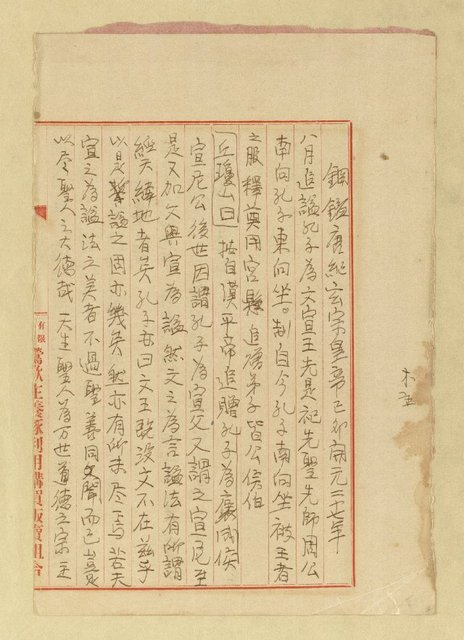 木
鋼鑑唐紀玄宗皇帝己卯開元二十七年
八月追謚孔子為文宣王先是祀先聖先師周公
南向孔子東向坐。制自今孔子南向坐被王者
之服釋奠用宮縣追贈弟子皆公侯伯
丘瓊山曰按自漢平帝追贈孔子為褒成侯
宣尼公後世因謂孔子為宣父又謂之宣尼至
是又加文與宣為謚然文之為言謚法有所謂
經天緯地者矣孔子亦曰文王既没文不在茲乎
以是謚之固亦幾矣然亦有所未尽焉若夫
宣之為謚法之美者不過聖善周聞而已豈足
以尽聖人之大德哉天生聖人為万世道德之宗主
有限
鶯歌庄養豚利用購買販賣組合